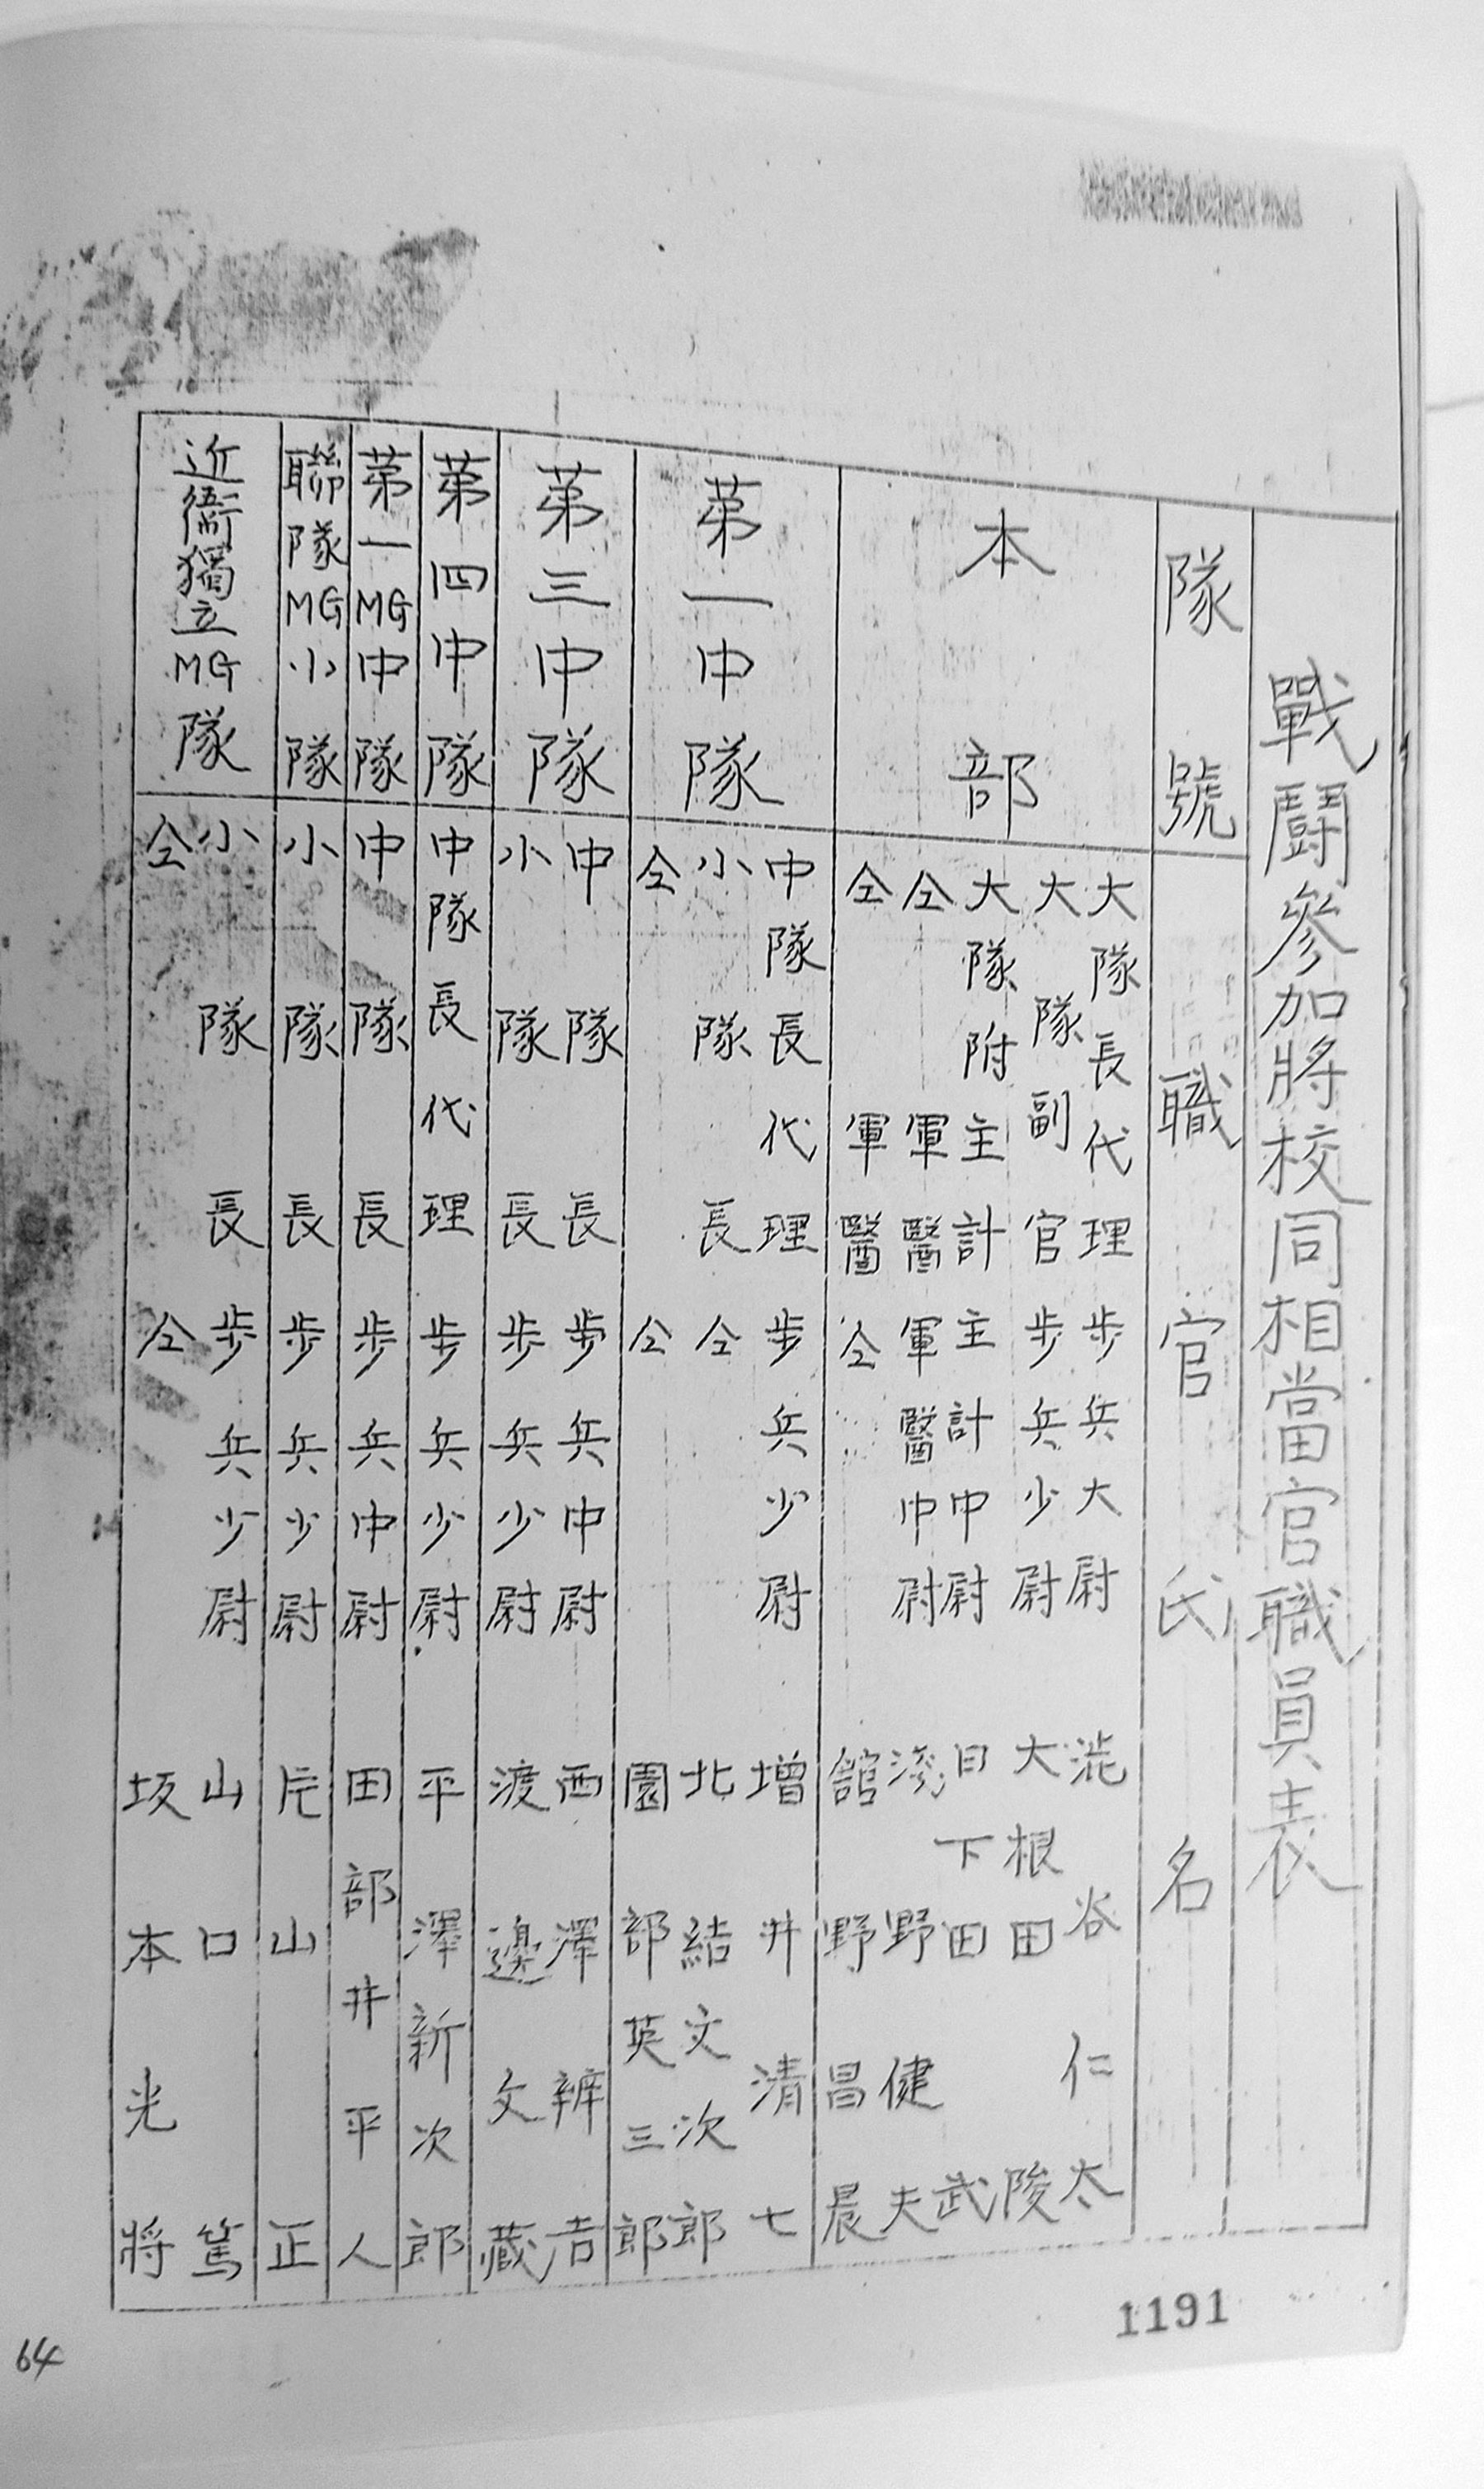 戰鬪參加將校同相當官職員表
隊號 職 官 氏 名
本部 大隊長代理 步兵大尉 澁谷仁太
大隊副官 步兵少尉 大根田陵
大隊附主計 主計中尉 日下田武
仝 軍醫 軍醫中尉 淺野健夫
仝 軍醫 仝 舘野昌晨
第一中隊 中隊長代理 步兵少尉 增井清七
小隊長 仝 北結文次郎
仝 仝 園部英三郎
第三中隊 中隊長 步兵中尉 西澤辨吉
小隊長 步兵少尉 渡邊文藏
第四中隊 中隊長代理 步兵少尉 平澤新次郎
第一MG中隊 中隊長 步兵中尉 田部井平人
聯隊MG小隊 小隊長 步兵少尉 片山正
近衞獨立MG隊 小隊長 步兵少尉 山口篤
仝 仝 坂本光將
1191
64